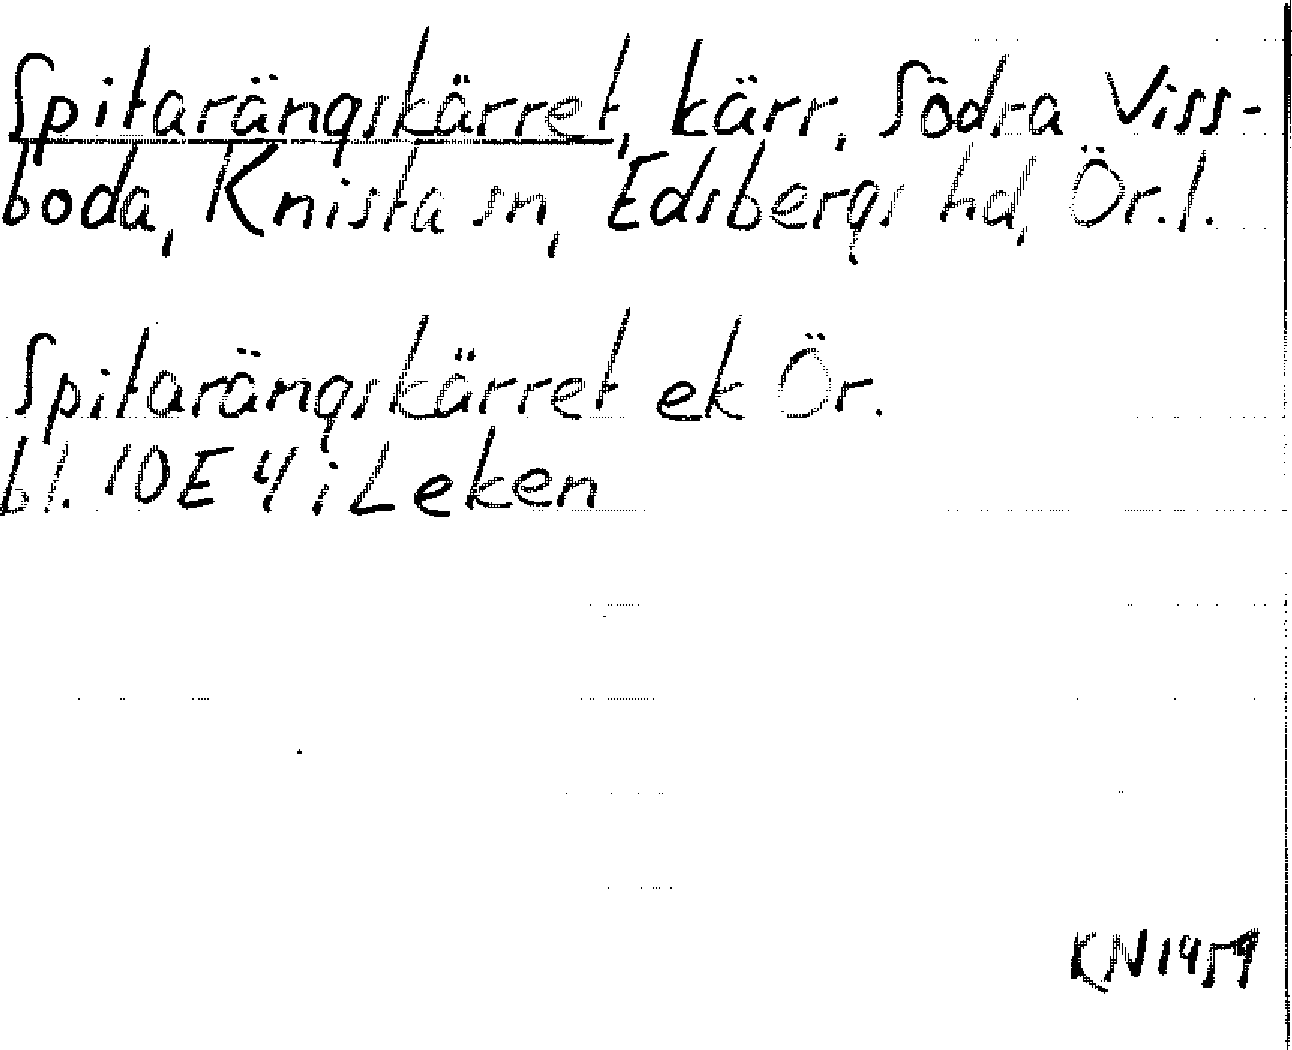 Spitarängskärret, kärr, Södra Viss-
boda, Knista sn, Edsbergs hd, Ör.l.
Spitarängskärret ek Ör.
bl. 10E4i Leken
KN1459